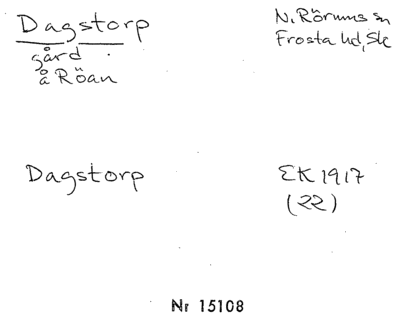 Dagstorp
gård
å Röan
N. Rörums sn
Frosta hd, Sk
Dagstorp
EK 1917
(22)
Nr 15108